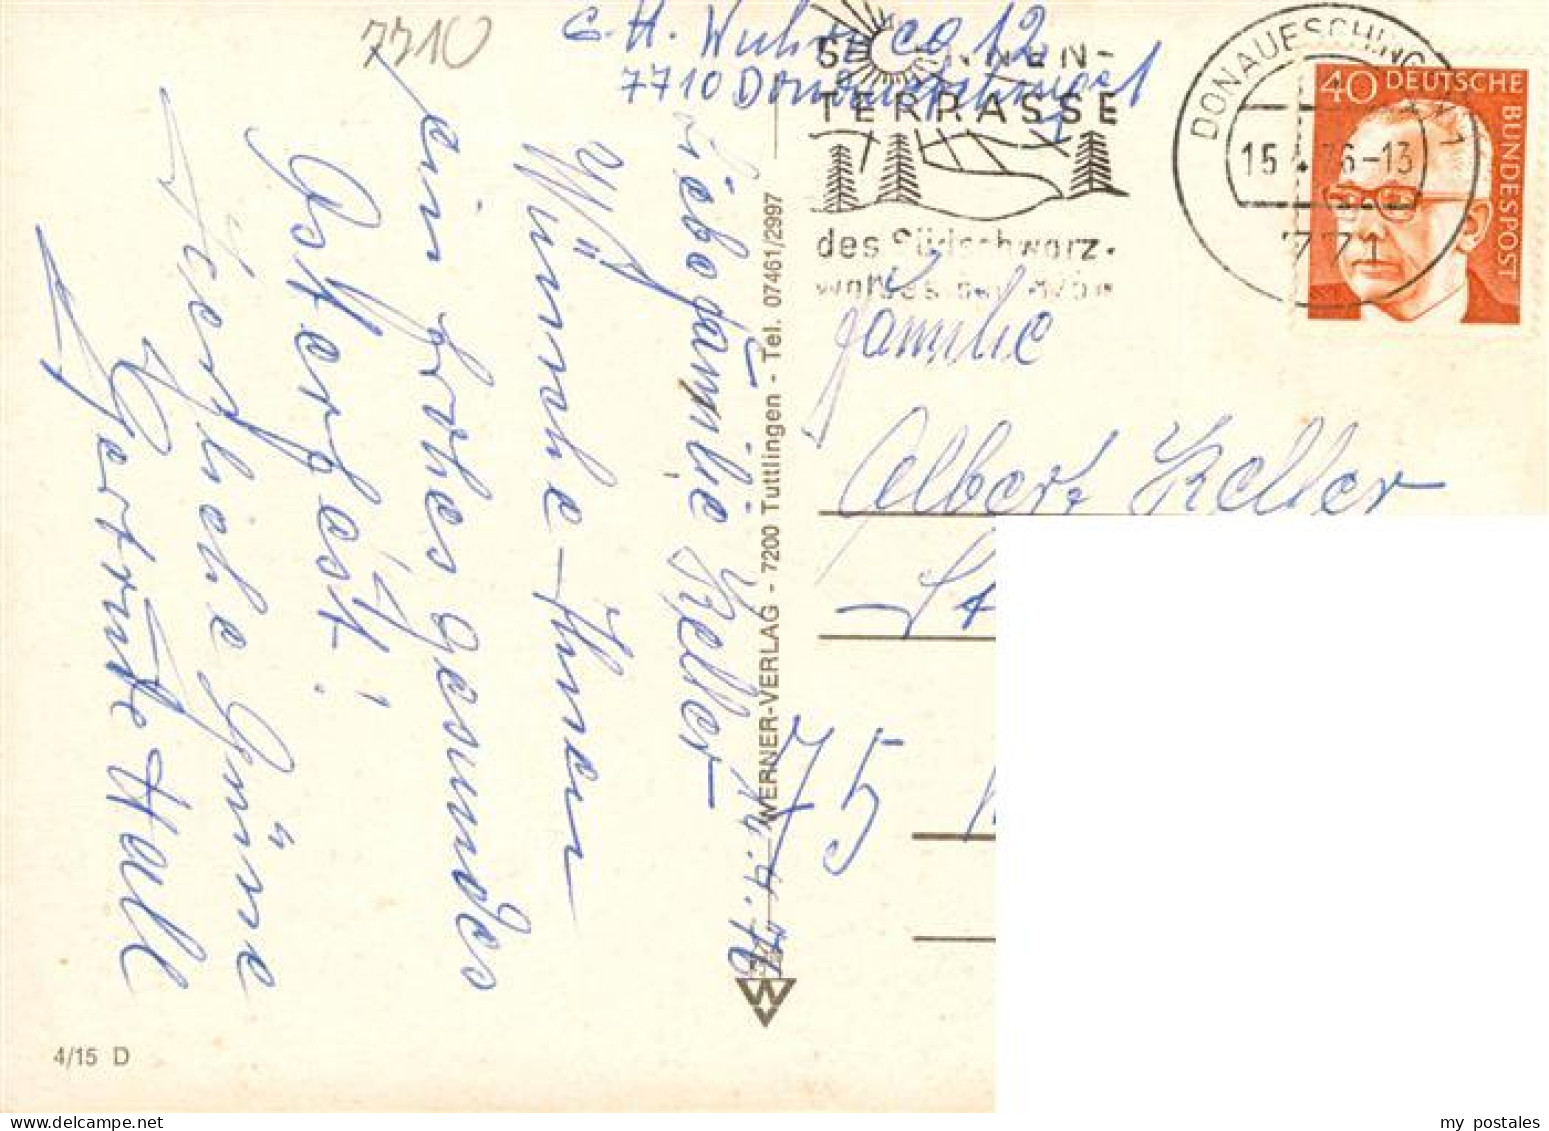 7710
G. H.
7710 Donaueschingen 1
SONNEN-
TERRASSE
des Südschwarz-
waldes
DONAUESCHINGEN 1
15.4.76-13
771
40 DEUTSCHE
BUNDESPOST
14.4.76
Liebe Familie Keller
Wünsche Ihnen
ein frohes gesundes
Osterfest!
Herzliche Grüße
Gertrude Hall
WERNER-VERLAG - 7200 Tuttlingen - Tel. 07461/2997
W
4/15 D
Familie
Albert Keller
75
my postales